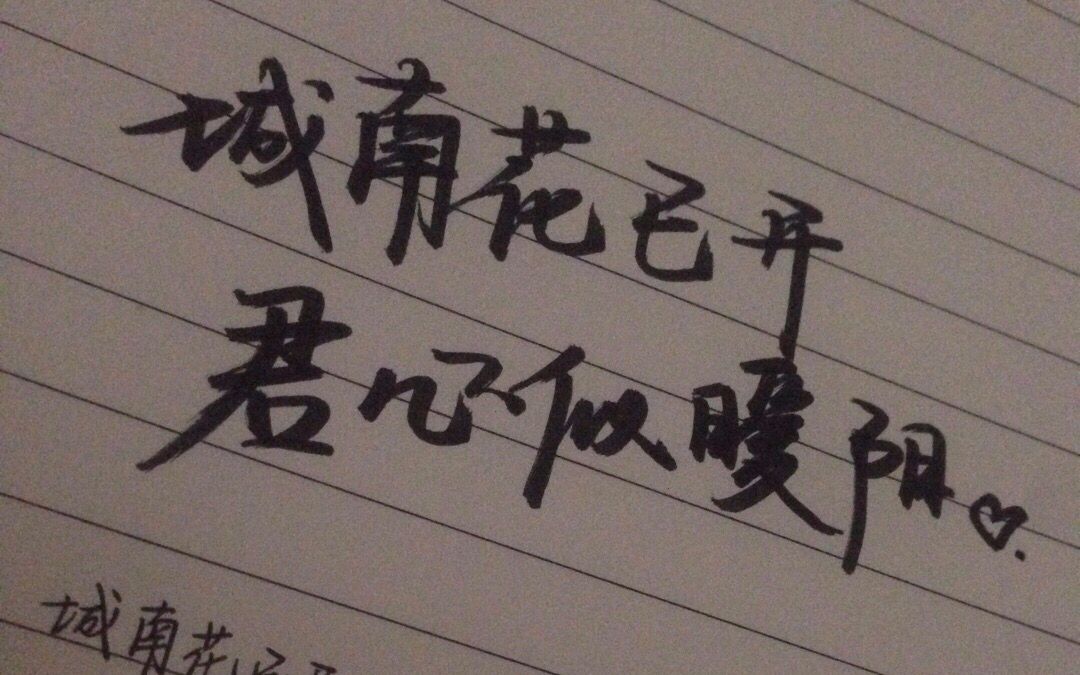 城南花已开
君心似暖阳
城南花已开